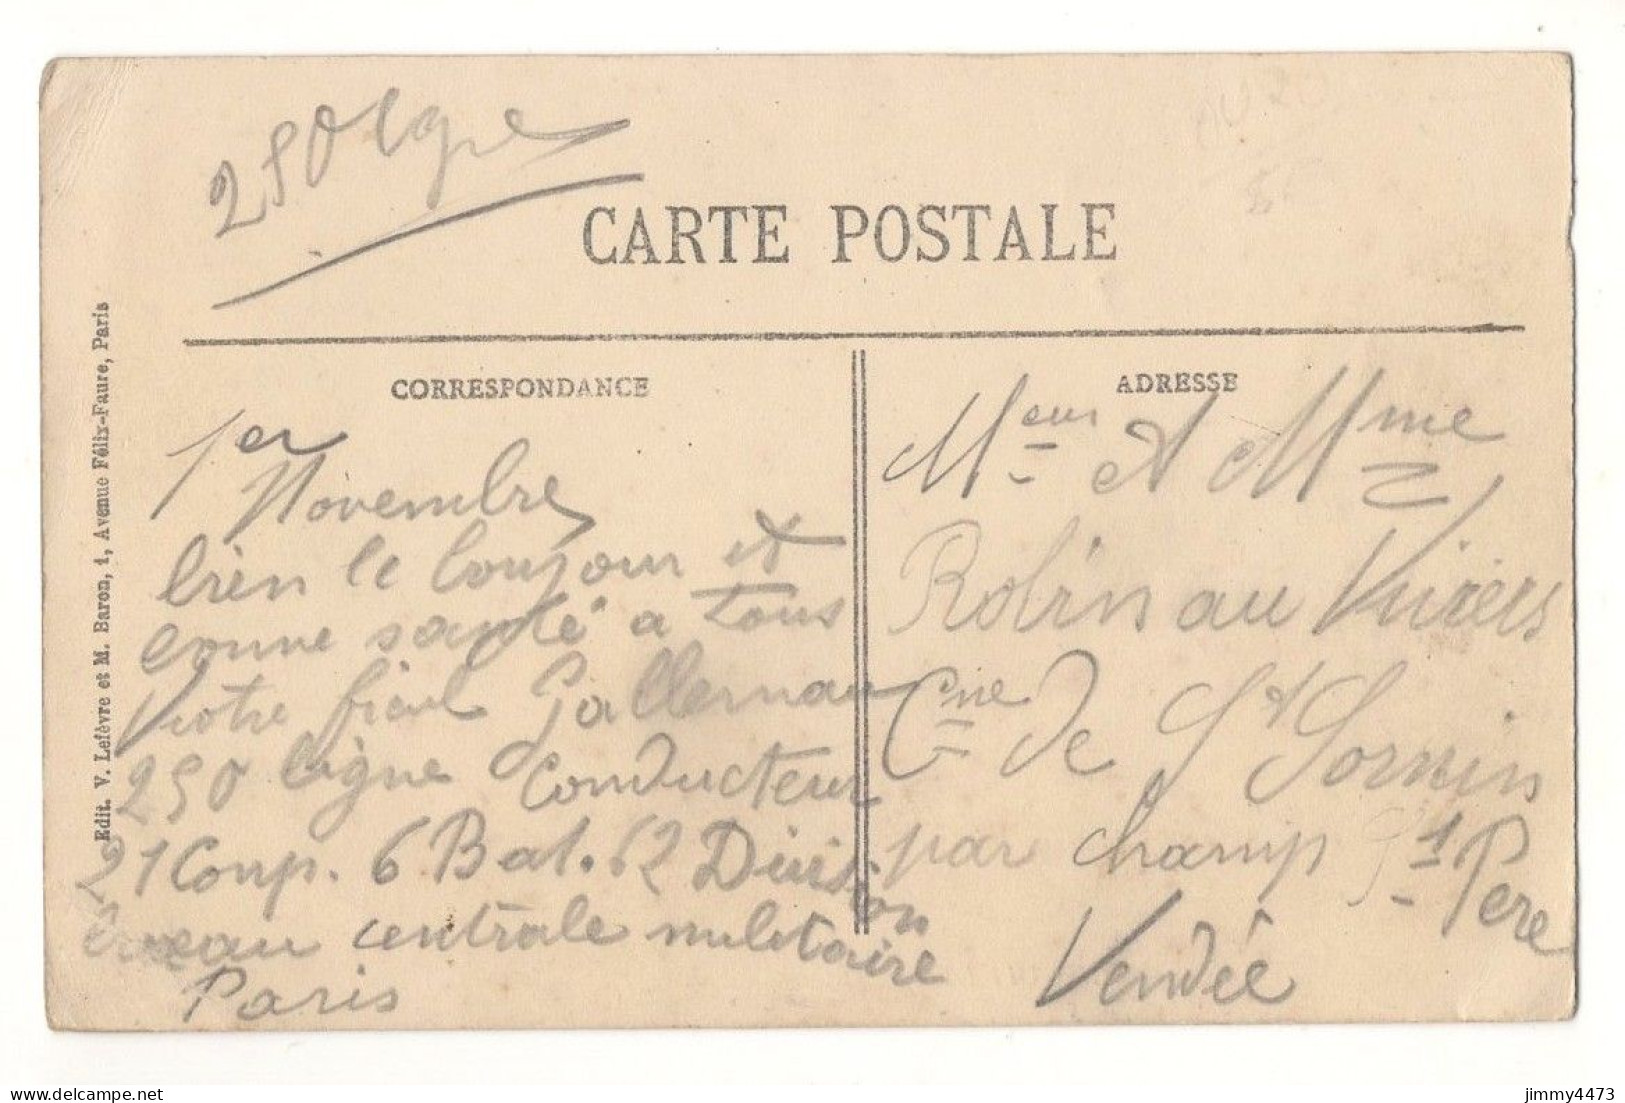 250 ligne
CARTE POSTALE
CORRESPONDANCE
ADRESSE
1er
Novembre
bien le bonjour et
bonne santé a tous
Votre fieul Gallernau
250 ligne Conducteur
21 Comp. 6 Bat. 62 Division
bureau centrale militaire
Paris
Meur et Mme
Robin au Viviers
Cne de St Sornin
par champ St Pere
Vendée
Edit. V. Lefèvre et M. Baron, 1, Avenue Félix-Faure, Paris
jimmy4473
delcampe.net